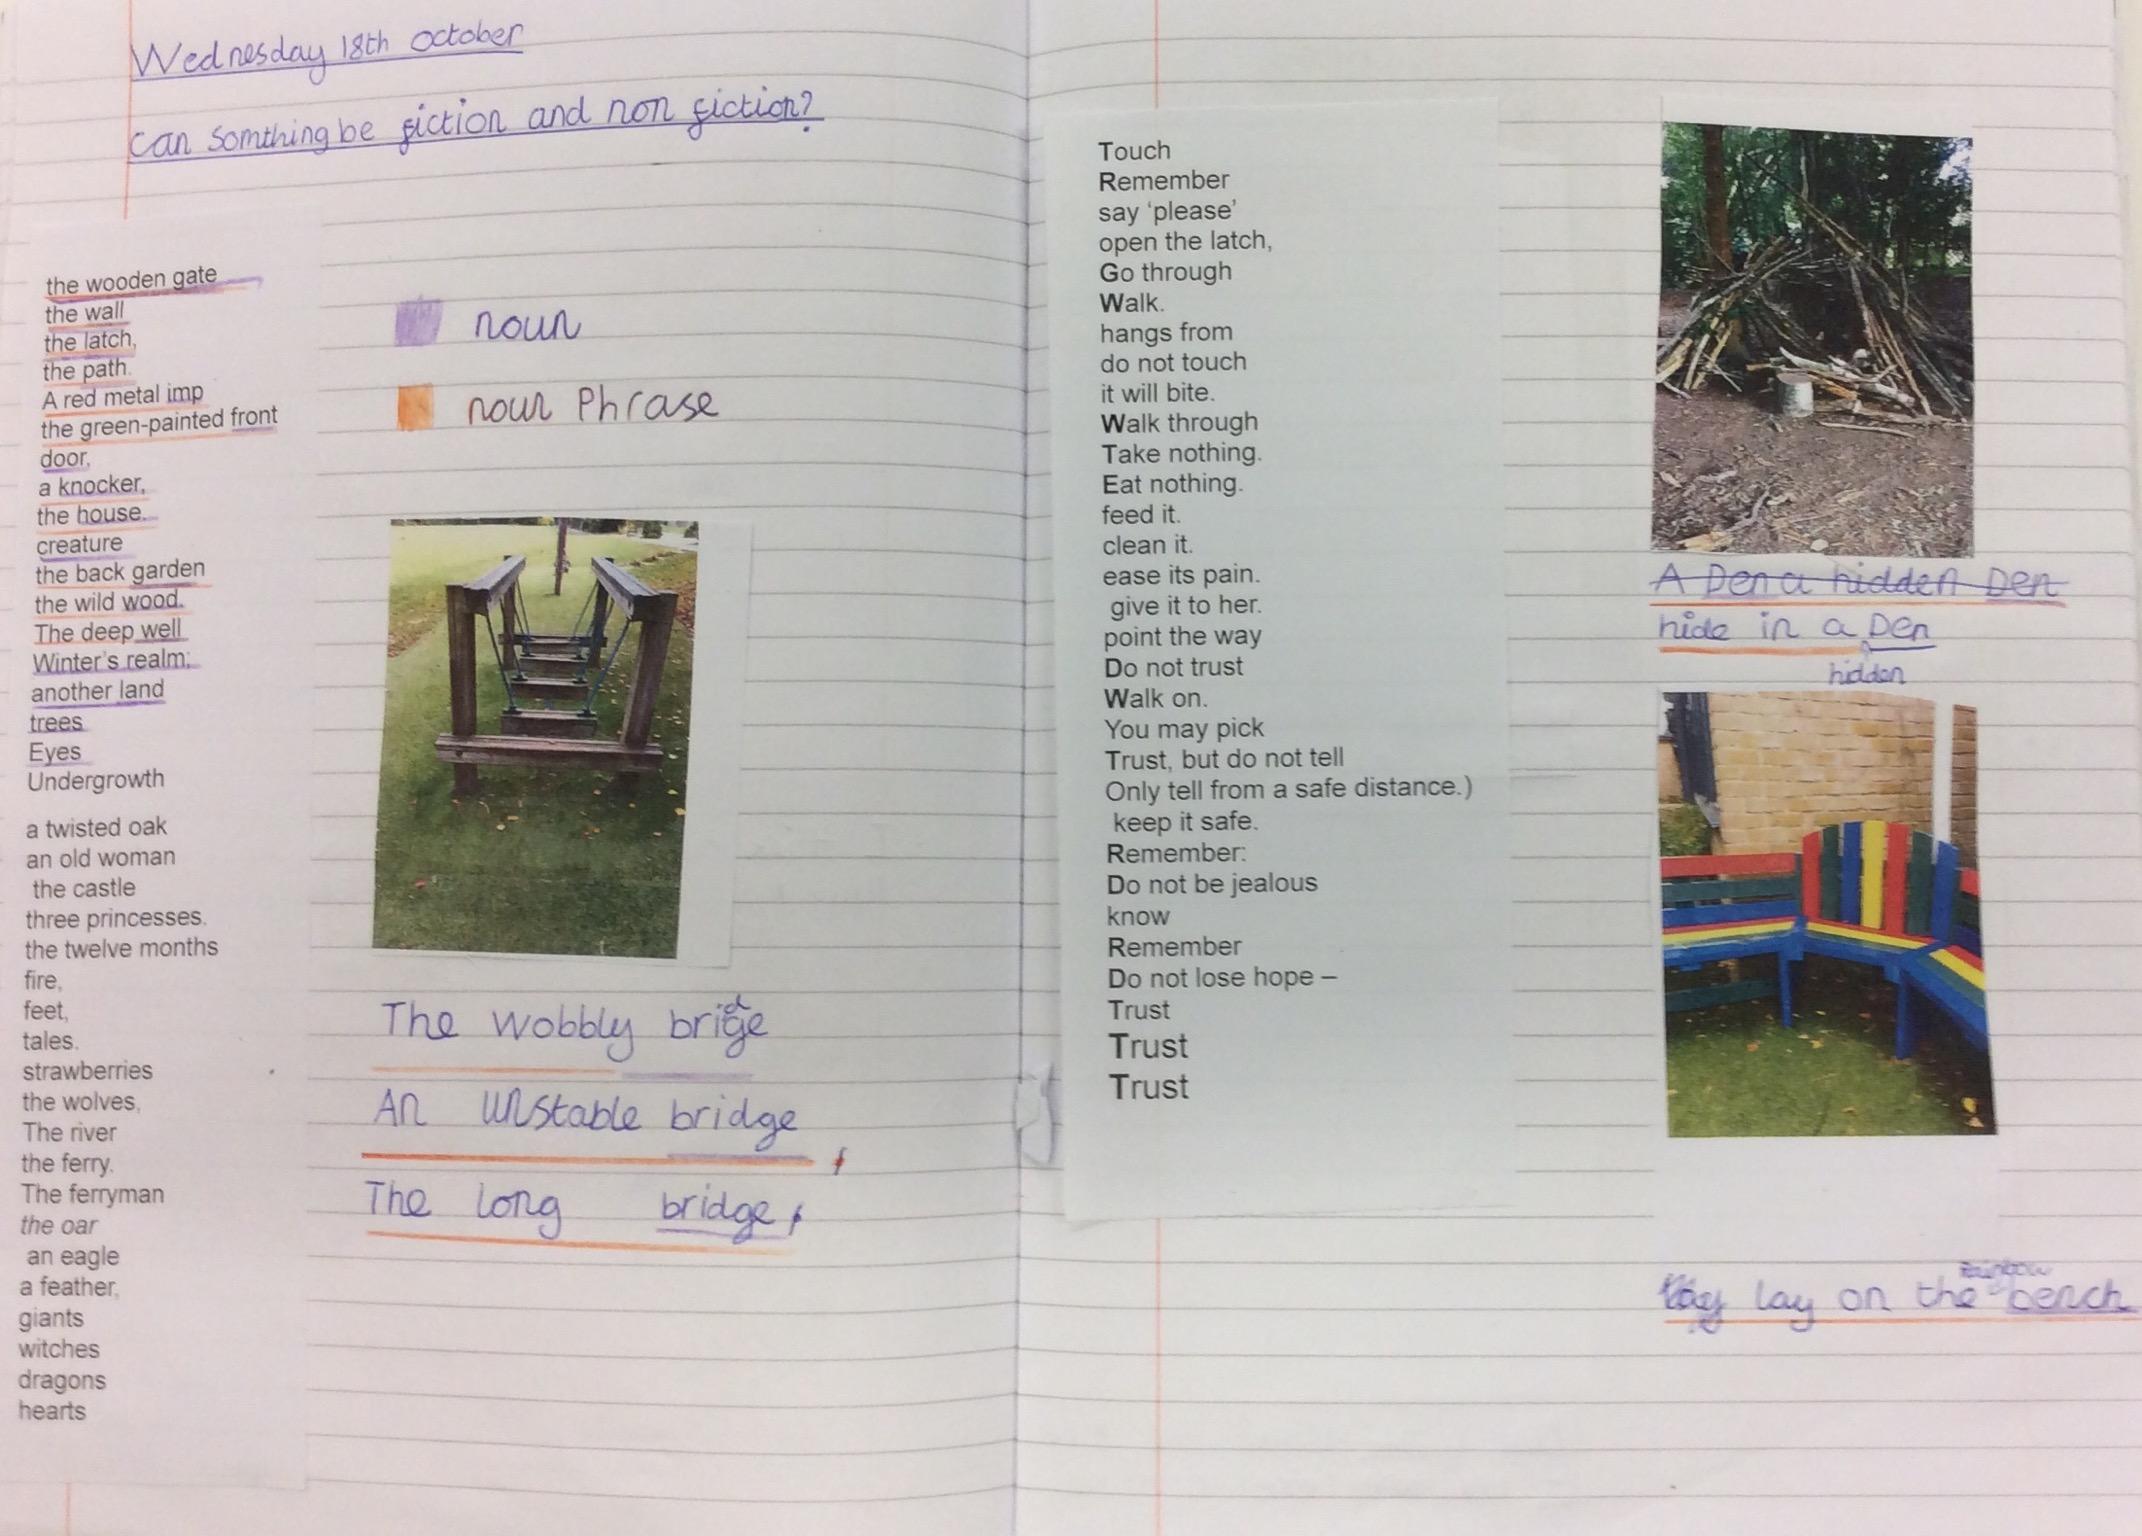 Wednesday 18th October
can somthing be fiction and non fiction?
the wooden gate
the wall
the latch,
the path.
A red metal imp
the green-painted front
door,
a knocker,
the house.
creature
the back garden
the wild wood.
The deep well
Winter's realm;
another land
trees
Eyes
Undergrowth
a twisted oak
an old woman
the castle
three princesses.
the twelve months
fire,
feet,
tales.
strawberries
the wolves,
The river
the ferry.
The ferryman
the oar
an eagle
a feather,
giants
witches
dragons
hearts
noun
noun Phrase
The wobbly bridge
An unstable bridge
The long bridge,
Touch
Remember
say ‘please’
open the latch,
Go through
Walk.
hangs from
do not touch
it will bite.
Walk through
Take nothing.
Eat nothing.
feed it.
clean it.
ease its pain.
give it to her.
point the way
Do not trust
Walk on.
You may pick
Trust, but do not tell
Only tell from a safe distance.)
keep it safe.
Remember:
Do not be jealous
know
Remember
Do not lose hope –
Trust
Trust
Trust
A Den a hidden Den
hide in a Den
hidden
rainbow
lay on the bench